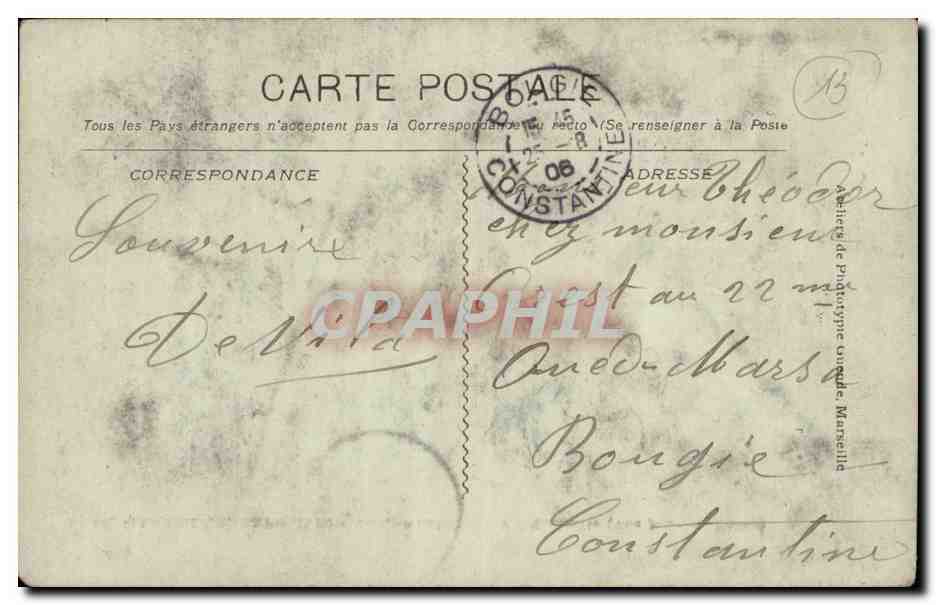 CARTE POSTALE
13
Tous les Pays étrangers n'acceptent pas la Correspondance au recto (Se renseigner à la Poste
BOUGIE
15 45
25 -8
06
CONSTANTINE
CORRESPONDANCE
ADRESSE
Théodor
Souvenire
chez monsieur
au 22 me
De Vita
Oued-Marsa
Bougie
Constantine
Ateliers de Phototypie Guende, Marseille
CPAPHIL